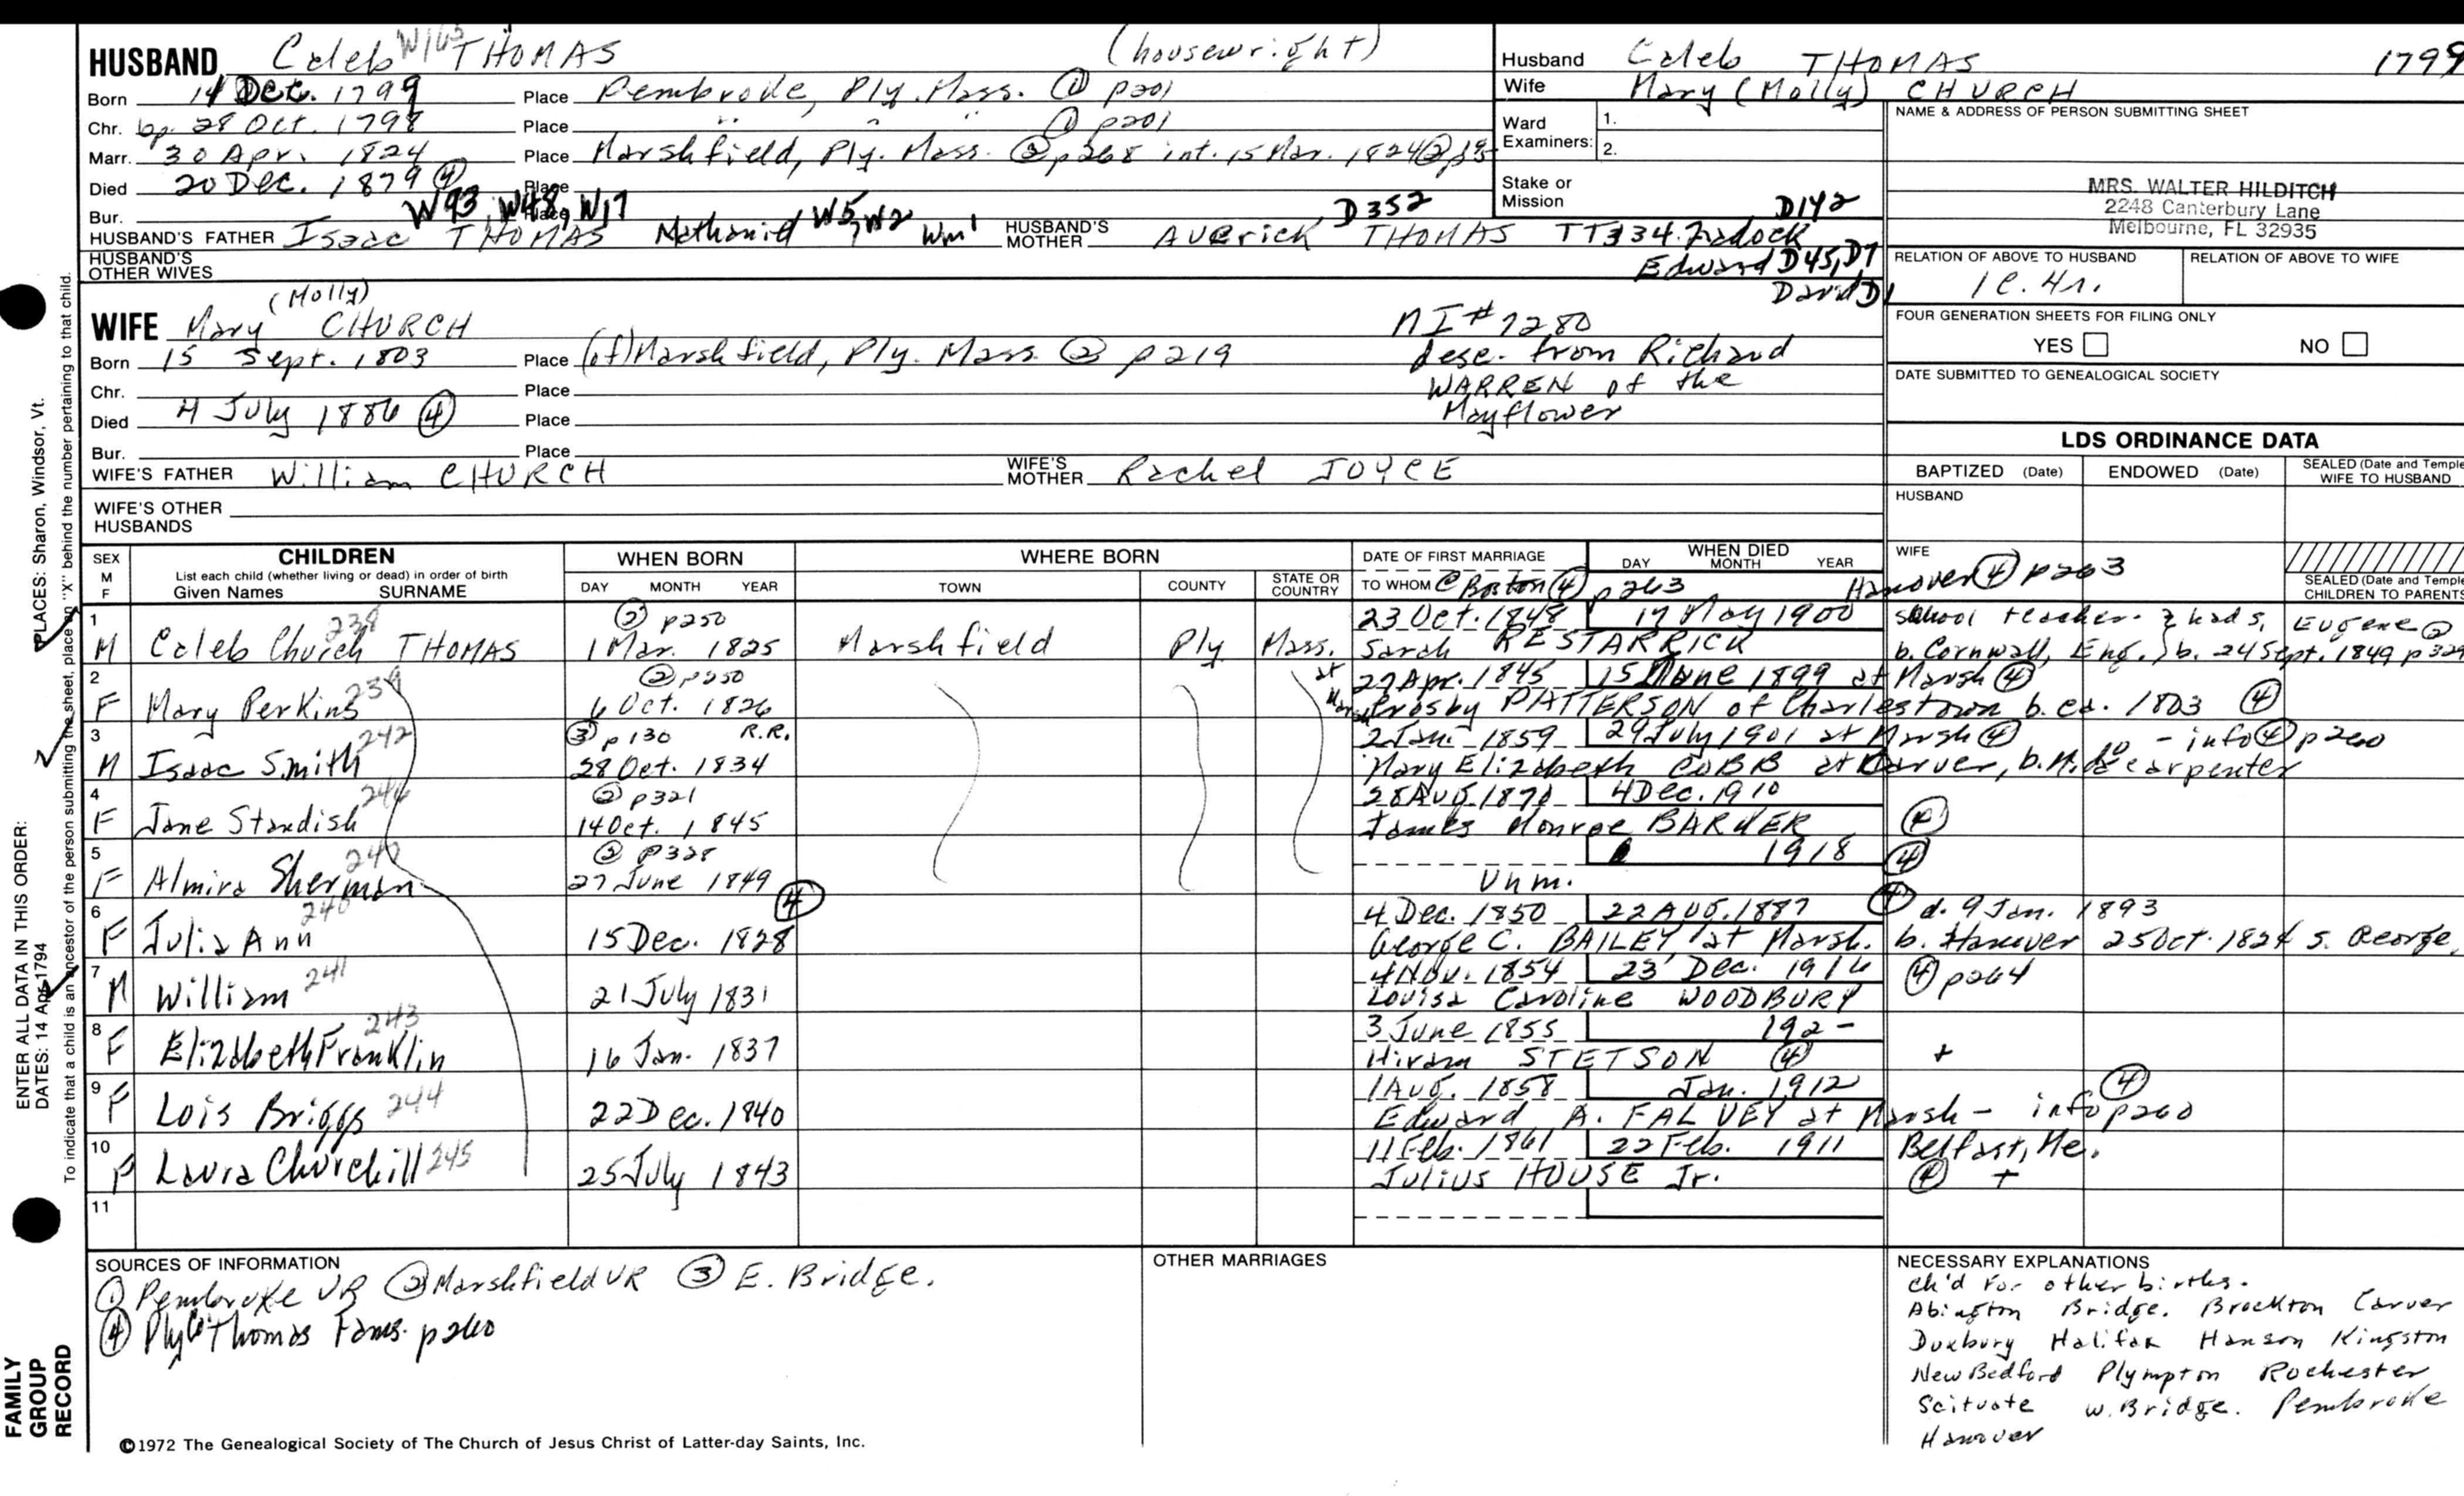 HUSBAND Caleb W163 THOMAS (housewright)
Born 14 Dec. 1799 Place Pembroke, Ply. Mass. ① p201
Chr. bp. 28 Oct. Place " " ① p201
Marr. 30 Apr. 1824 Place Marshfield, Ply. Mass. ② p268 int. 15 Mar. 1824 ②
Died 20 Dec. 1879 ④ Place
Bur. Place W93, W48, W17
HUSBAND'S FATHER Isaac THOMAS Nathaniel W5, W2 Wm1 HUSBAND'S MOTHER Averick THOMAS D352 TT334. Zadock D142
HUSBAND'S OTHER WIVES Edward D45, D7
David D1
Husband Caleb THOMAS 1799
Wife Mary (Molly) CHURCH
Ward Examiners: 1.
2.
Stake or Mission
NAME & ADDRESS OF PERSON SUBMITTING SHEET
MRS. WALTER HILDITCH
2248 Canterbury Lane
Melbourne, FL 32935
RELATION OF ABOVE TO HUSBAND RELATION OF ABOVE TO WIFE
1c. 4r.
FOUR GENERATION SHEETS FOR FILING ONLY
YES NO
DATE SUBMITTED TO GENEALOGICAL SOCIETY
WIFE Mary (Molly) CHURCH
Born 15 Sept. 1803 Place (of) Marshfield, Ply. Mass. ② p219
Chr. Place
Died 4 July 1886 ④ Place
Bur. Place
NI# 7280
desc. from Richard
WARREN of the
Mayflower
WIFE'S FATHER William CHURCH WIFE'S MOTHER Rachel JOYCE
WIFE'S OTHER HUSBANDS
LDS ORDINANCE DATA
BAPTIZED (Date) ENDOWED (Date) SEALED (Date and Temple) WIFE TO HUSBAND
HUSBAND
WIFE
SEALED (Date and Temple) CHILDREN TO PARENTS
SEX M F CHILDREN List each child (whether living or dead) in order of birth Given Names SURNAME
WHEN BORN DAY MONTH YEAR
WHERE BORN TOWN COUNTY STATE OR COUNTRY
DATE OF FIRST MARRIAGE TO WHOM WHEN DIED DAY MONTH YEAR
@ Boston ④ p263 Hanover ④ p263
1 ② p250 23 Oct. 1848 17 May 1900 school teacher. 2 had s. Eugene ②
M Caleb Church THOMAS 238 1 Mar. 1825 Marshfield Ply Mass. Sarah RESTARRICK b. Cornwall, Eng. b. 24 Sept. 1849 p329
2 ② p250 27 Apr. 1845 15 June 1899 at Marsh ④
F Mary Perkins 239 6 Oct. 1826 at Marsh Crosby PATTERSON of Charlestown b. ca. 1803 ④
3 ③ p130 R.R. 2 Jan. 1859 29 July 1901 at Marsh ④ - info ④ p260
M Isaac Smith 242 28 Oct. 1834 Mary Elizabeth COBB at Carver, b. carpenter
4 ② p321 28 Aug. 4 Dec. 1910
F Jane Standish 246 14 Oct. 1845 James Monroe BARKER ④
5 ② p328 1918 ④
F Almira Sherman 247 27 June 1849 Unm.
6 ④ 4 Dec. 1850 22 Aug. 1887 ④ d. 9 Jan. 1893
F Julia Ann 240 15 Dec. 1828 George C. BAILEY at Marsh. b. Hanover 25 Oct. 1824 s. George
7 4 Nov. 1854 23 Dec. 1916 ④ p264
M William 241 21 July 1831 Louisa Caroline WOODBURY
8 3 June 1855 192-
F Elizabeth Franklin 243 16 Jan. 1837 Hiram STETSON ④ +
9 1 Aug. 1858 Jan. 1912 ④
F Lois Briggs 244 22 Dec. 1840 Edward A. FALVEY at Marsh - info p260
10 11 Feb. 1861 22 Feb. 1911 Belfast, Me.
F Laura Churchill 245 25 July 1843 Julius HOUSE Jr. ④ +
11
SOURCES OF INFORMATION
① Pembroke VR ② Marshfield VR ③ E. Bridge.
④ Ply Co Thomas Fams. p260
OTHER MARRIAGES
NECESSARY EXPLANATIONS
ch'd for other births.
Abington Bridge. Brockton Carver
Duxbury Halifax Hanson Kingston
New Bedford Plympton Rochester
Scituate W. Bridge. Pembroke
Hanover
©1972 The Genealogical Society of The Church of Jesus Christ of Latter-day Saints, Inc.
FAMILY GROUP RECORD
ENTER ALL DATA IN THIS ORDER:
DATES: 14 Apr 1794 PLACES: Sharon, Windsor, Vt.
To indicate that a child is an ancestor of the person submitting the sheet, place an "X" behind the number pertaining to that child.